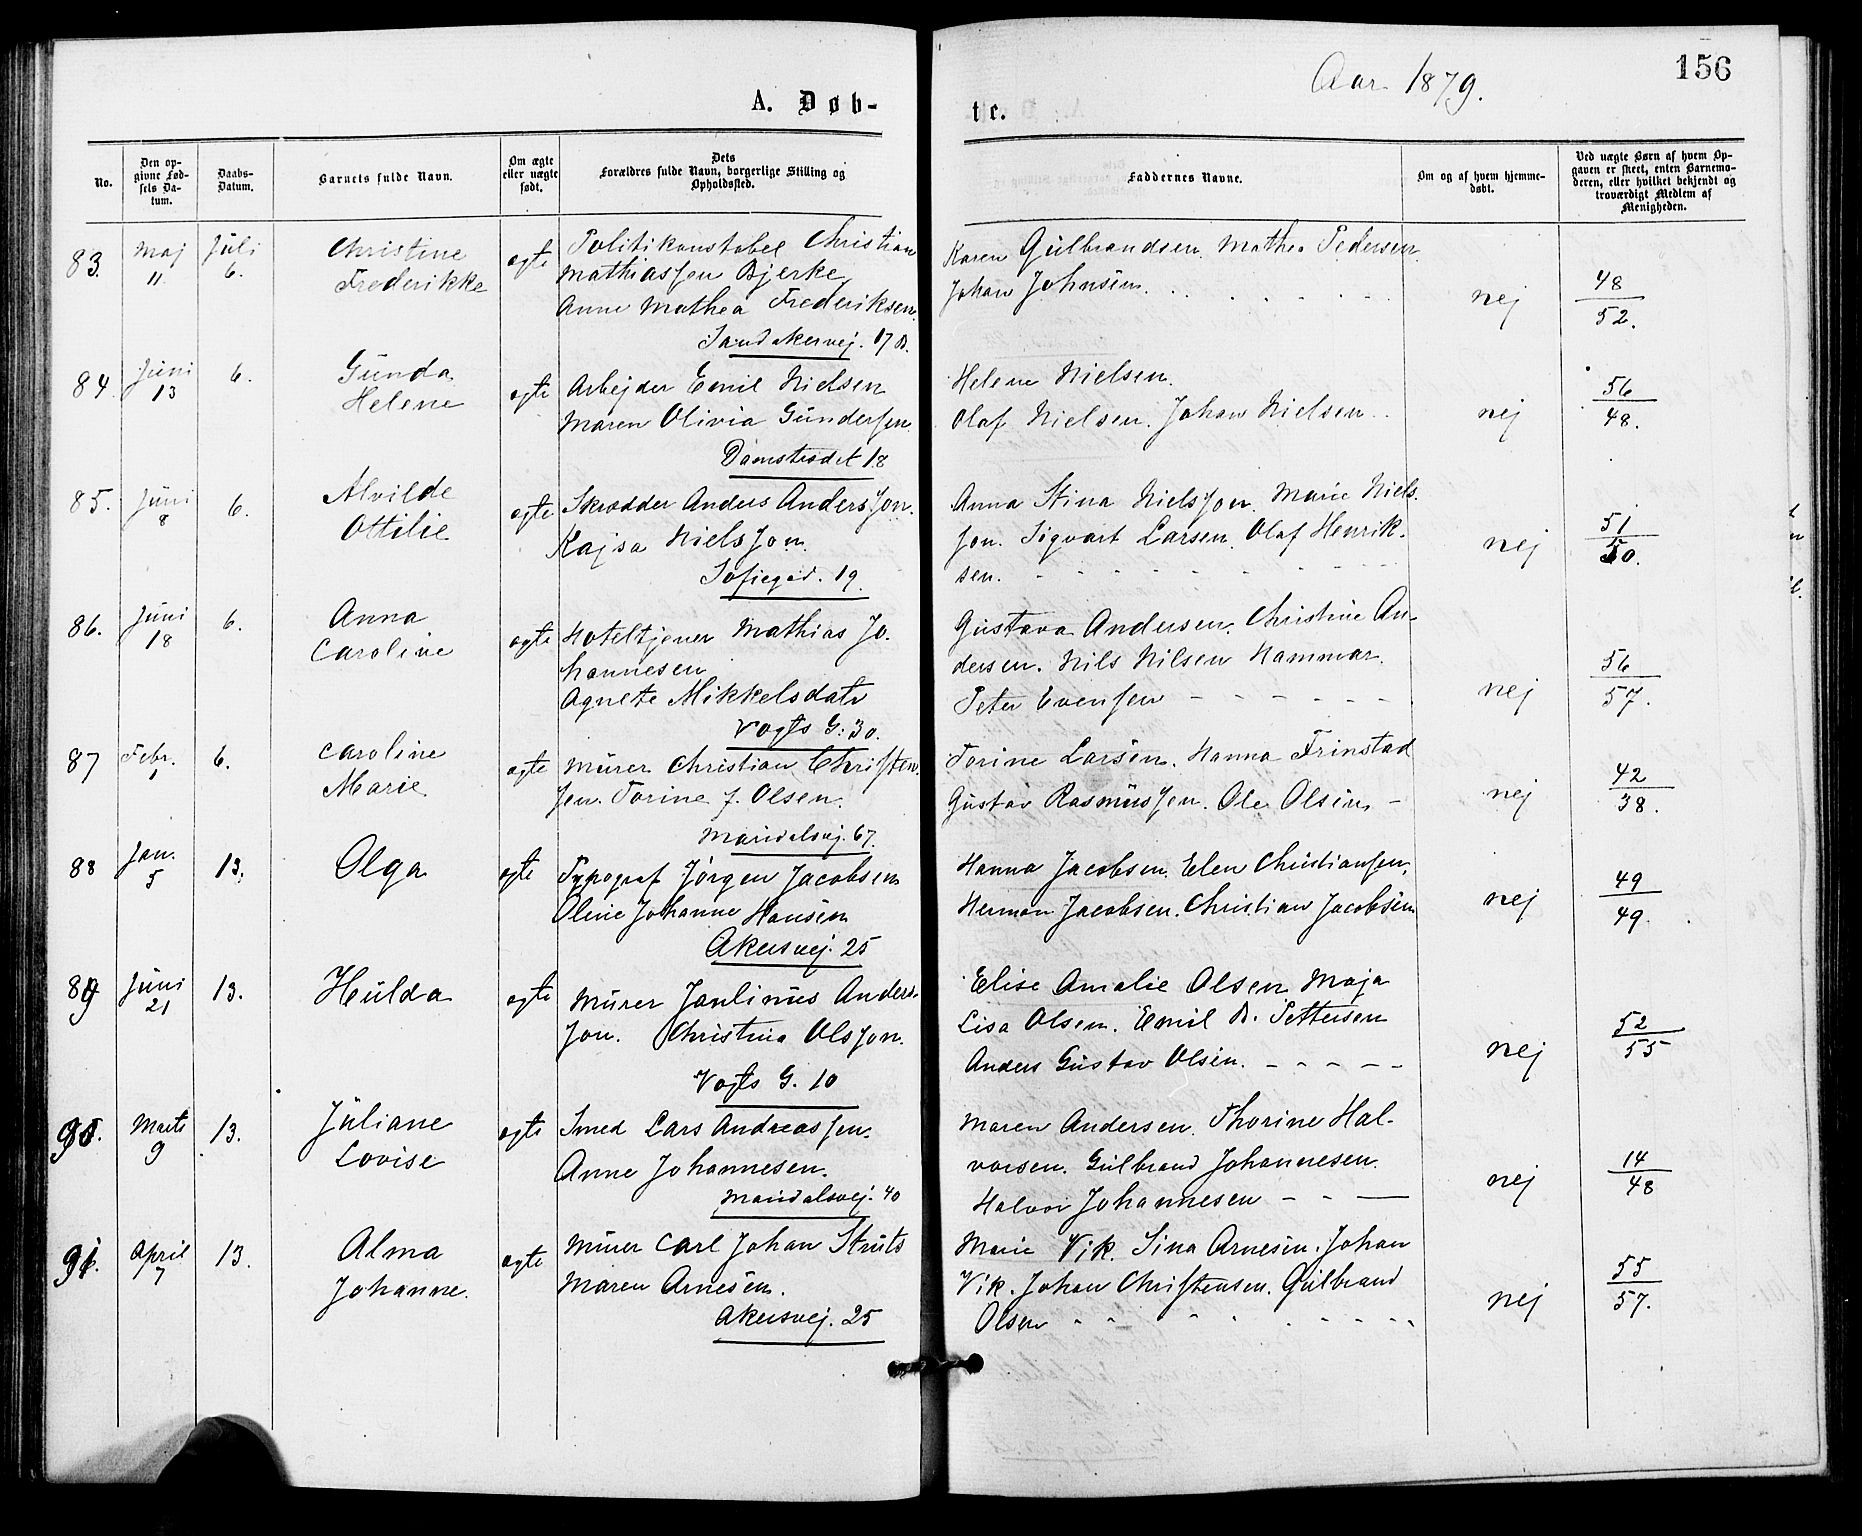 156
Aar 1879.
A. Døb-
te.
No.
Den op-
givne Fød-
sels Da-
tum.
Daabs-
Datum.
Barnets fulde Navn.
Om ægte
eller uægte
født.
Dets
Forældres fulde Navn, borgerlige Stilling og
Opholdssted.
Faddernes Navne.
Om og af hvem hjemme-
døbt.
Ved uægte Børn af hvem Op-
gaven er skeet, enten Barnemo-
deren, eller hvilket bekjendt og
troværdigt Medlem af
Menigheden.
83.
Maj
11
Juli
6.
Christine
Frederikke
ægte
Politikonstabel Christian
Mathiassen Bjerke
Anne Mathea Frederiksen.
Sandakervej. 17 B.
Karen Gulbrandsen. Mathea Pedersen
Johan Johnsen.
nej
48
52.
84.
Juni
13
6.
Gunda
Helene
ægte
Arbejder Emil Nielsen
Maren Olivia Gundersen
Damstrædet 18
Helene Nielsen.
Olaf Nielsen. Johan Nielsen
nej
56
48.
85.
Juni
8
6.
Alvilde
Ottilie
ægte
Skrædder Anders Andersson.
Kajsa Nielsson.
Sofiegad. 19.
Anna Stina Nielsson. Marie Niels-
son. Sigvart Larsen. Olaf Henrik-
sen.
nej
51
50.
86.
Juni
18
6.
Anna
Caroline
ægte
Hoteltjener Mathias Jo-
hannesen
Agnete Mikkelsdatr
Vogts G. 30.
Gustava Andersen. Christine An-
dersen. Nils Nilsen Hammar.
Peter Evensen
nej
56
57.
87
Febr.
1
6.
Caroline
Marie
ægte
Murer Christian Christen-
sen. Torine f. Olsen.
Maridalsvej. 67.
Torine Larsen. Hanna Frinstad
Gustav Rasmussen. Ole Olsen
nej
42
38.
88
Jan.
5
13.
Olga
ægte
Typograf Jörgen Jacobsen
Oline Johanne Hansen
Akersvej. 25
Hanna Jacobsen. Elen Christiansen,
Herman Jacobsen. Christian Jacobsen
nej
49
49.
89
Juni
21
13.
Hulda
ægte
Murer Paulinus Anders-
son. Christina Olsson.
Vogts G. 10
Elise Amalie Olsen Maja
Lisa Olsen. Emil B. Pettersen
Anders Gustav Olsen.
nej
52
55
90.
Marts
9
13.
Juliane
Lovise
ægte
Smed Lars Andreassen.
Anne Johannesen.
Maridalsvej. 40
Maren Andersen. Thorine Hal-
vorsen. Gulbrand Johannesen.
Halvor Johannesen
nej
14
48
91.
April
7
13.
Alma
Johanne.
ægte
Murer Carl Johan Struts
Maren Arnesen.
Akersvej. 25
Marie Vik. Sina Arnesen. Johan
Vik. Johan Christensen. Gulbrand
Olsen
nej
55
57.